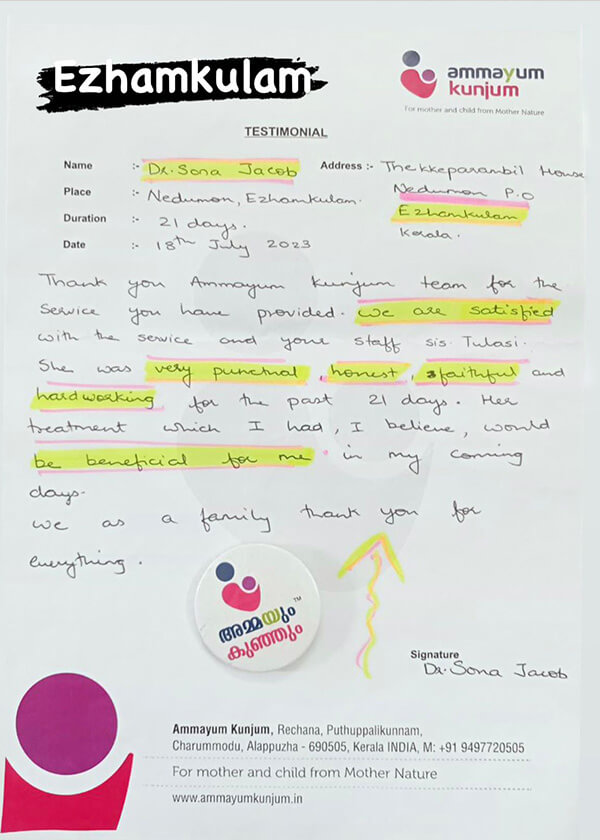 Ezhamkulam
ammayum
kunjum
For mother and child from Mother Nature
TESTIMONIAL
Name :- Dr. Sona Jacob
Address :- Thekkeparambil House
Nedumon P.O
Ezhamkulam
Kerala.
Place :- Nedumon, Ezhamkulam.
Duration :- 21 days.
Date :- 18th July 2023
Thank you Ammayum Kunjum team for the
service you have provided. We are satisfied
with the service and your staff sis. Tulasi.
She was very punctual, honest, faithful and
hardworking for the past 21 days. Her
treatment which I had, I believe, would
be beneficial for me in my coming
days.
We as a family thank you for
everything.
അമ്മയും TM
കുഞ്ഞും
Signature
Dr. Sona Jacob
Ammayum Kunjum, Rechana, Puthuppalikunnam,
Charummodu, Alappuzha - 690505, Kerala INDIA, M: +91 9497720505
For mother and child from Mother Nature
www.ammayumkunjum.in